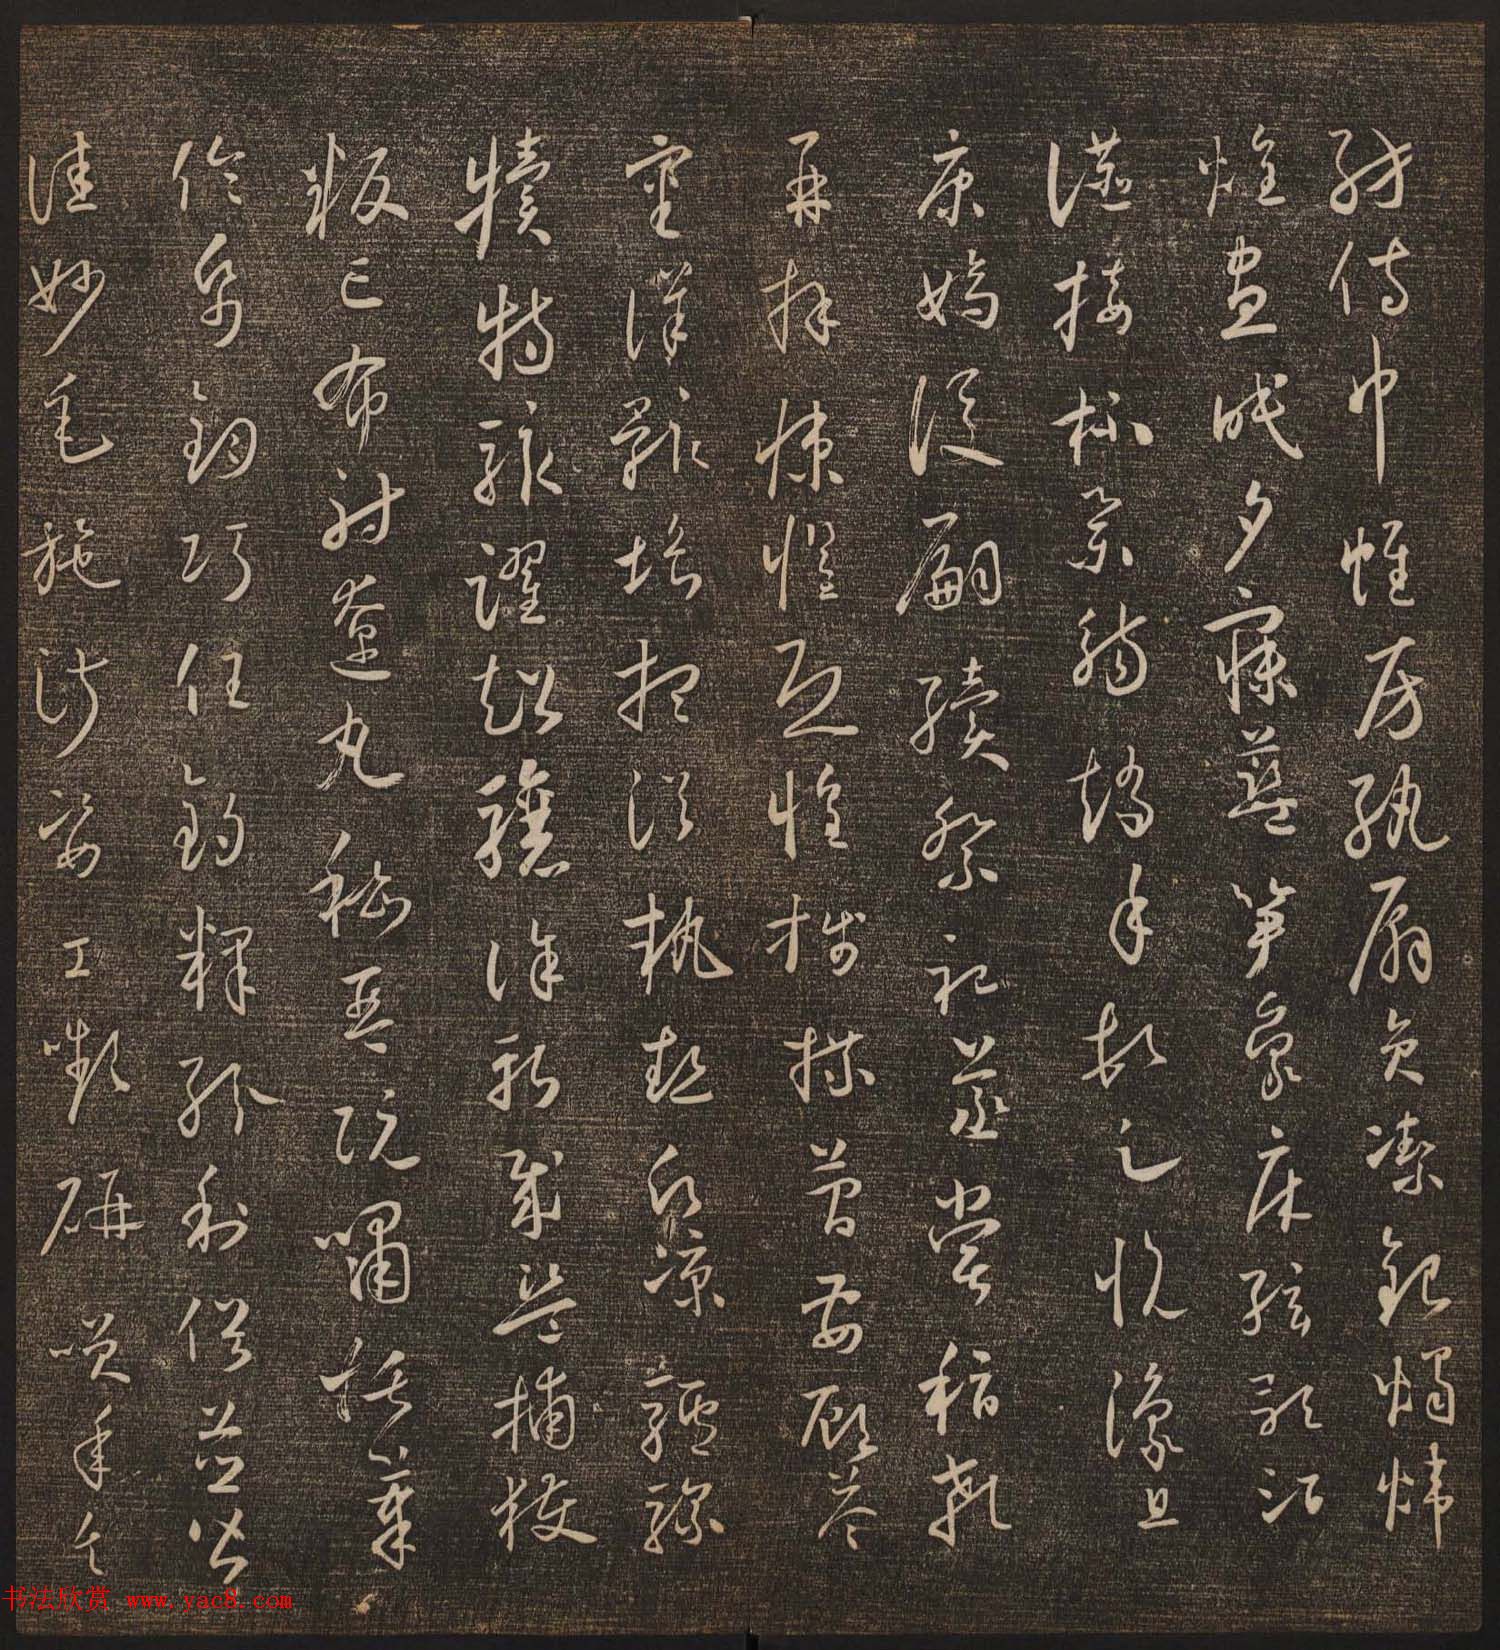 紡侍巾帷房紈扇員潔銀燭煒
煌晝眠夕寐藍笋象床弦歌酒
讌接杯舉觴矯手頓足悅豫且
康嫡後嗣續祭祀蒸嘗稽顙
再拜悚懼恐惶牋牒簡要顧答
審詳骸垢想浴執熱願涼驢騾
犢特駭躍超驤誅斬賊盜捕獲
叛亡布射遼丸嵇琴阮嘯恬筆
倫紙鈞巧任釣釋紛利俗並皆
佳妙毛施淑姿工顰妍笑年矢
书法欣赏 www.yac8.com